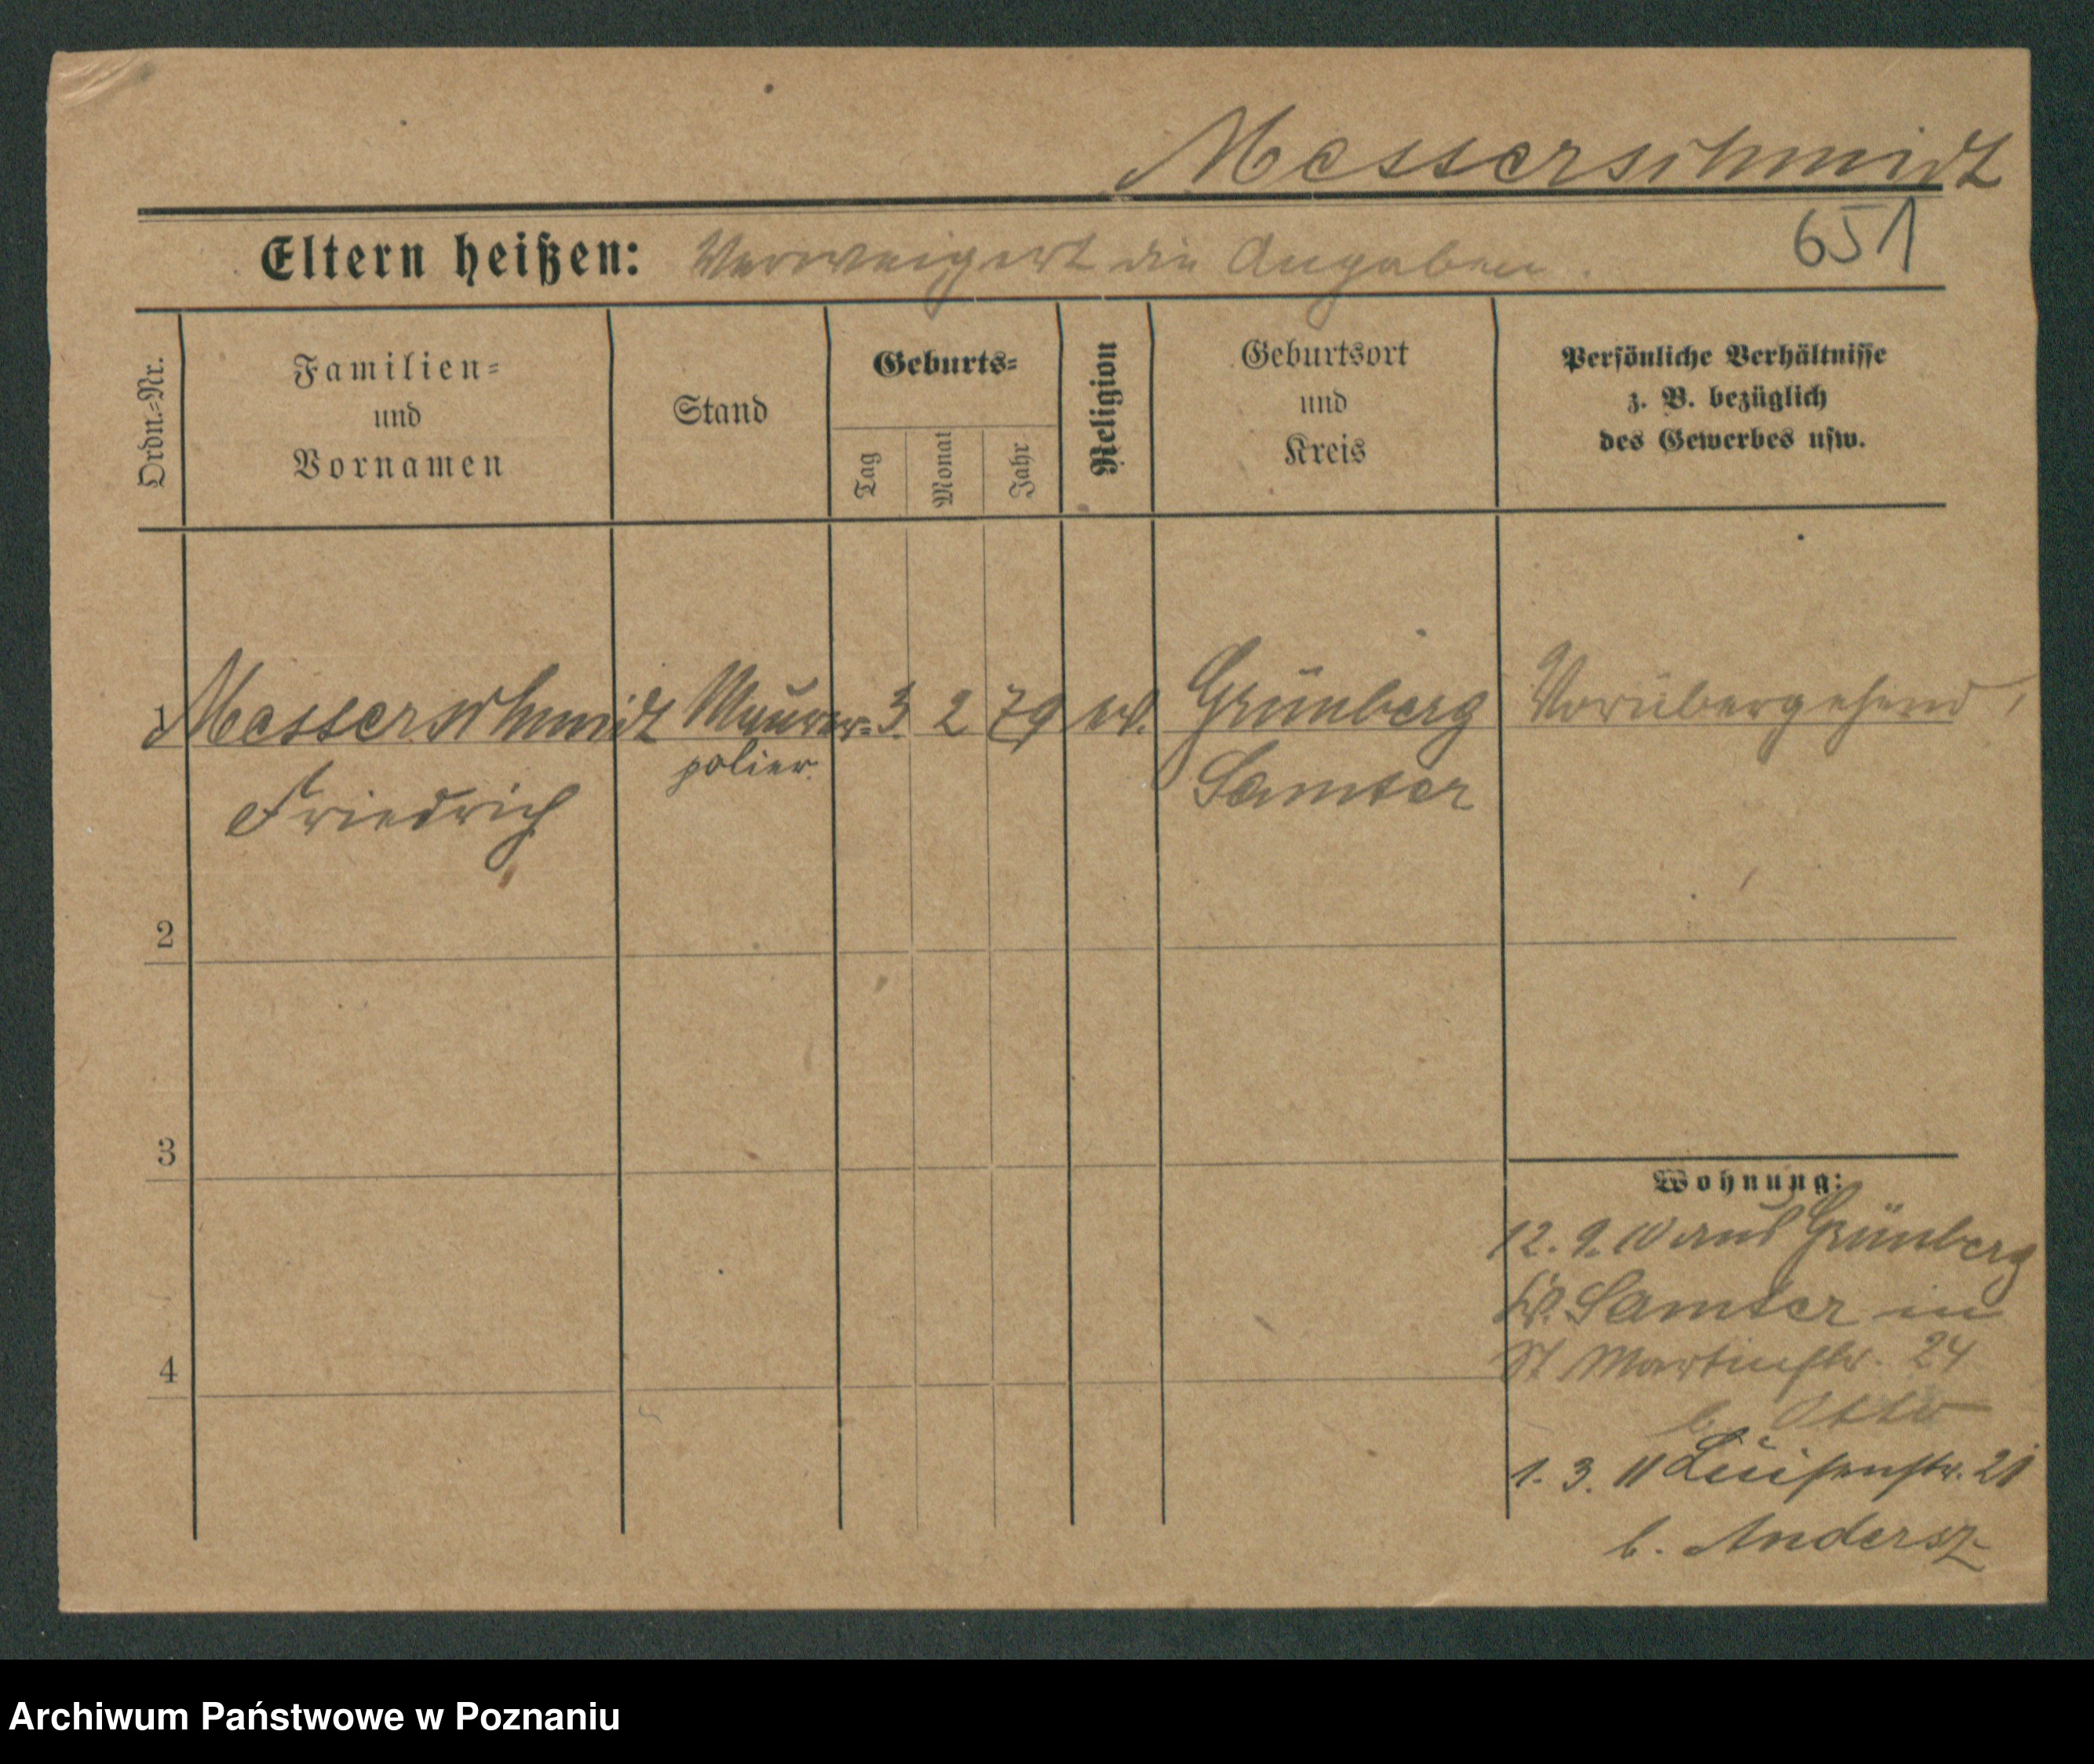 Messerschmidt
651
Eltern heißen: Verweigert die Angaben.
Ordn.=Nr.
Familien=
und
Vornamen
Stand
Geburts=
Tag
Monat
Jahr
Religion
Geburtsort
und
Kreis
Persönliche Verhältnisse
z. B. bezüglich
des Gewerbes usw.
1 Messerschmidt Maurer= 3. 2 79 ev. Grünberg Vorübergehend
polier.
Friedrich
Samter
2
3
4
Wohnung:
12. 9. 10 aus Grünberg
Kr. Samter in
St Martinstr. 24
b. Otto
1. 3. 11 Luisenstr. 21
b. Andersz
Archiwum Państwowe w Poznaniu